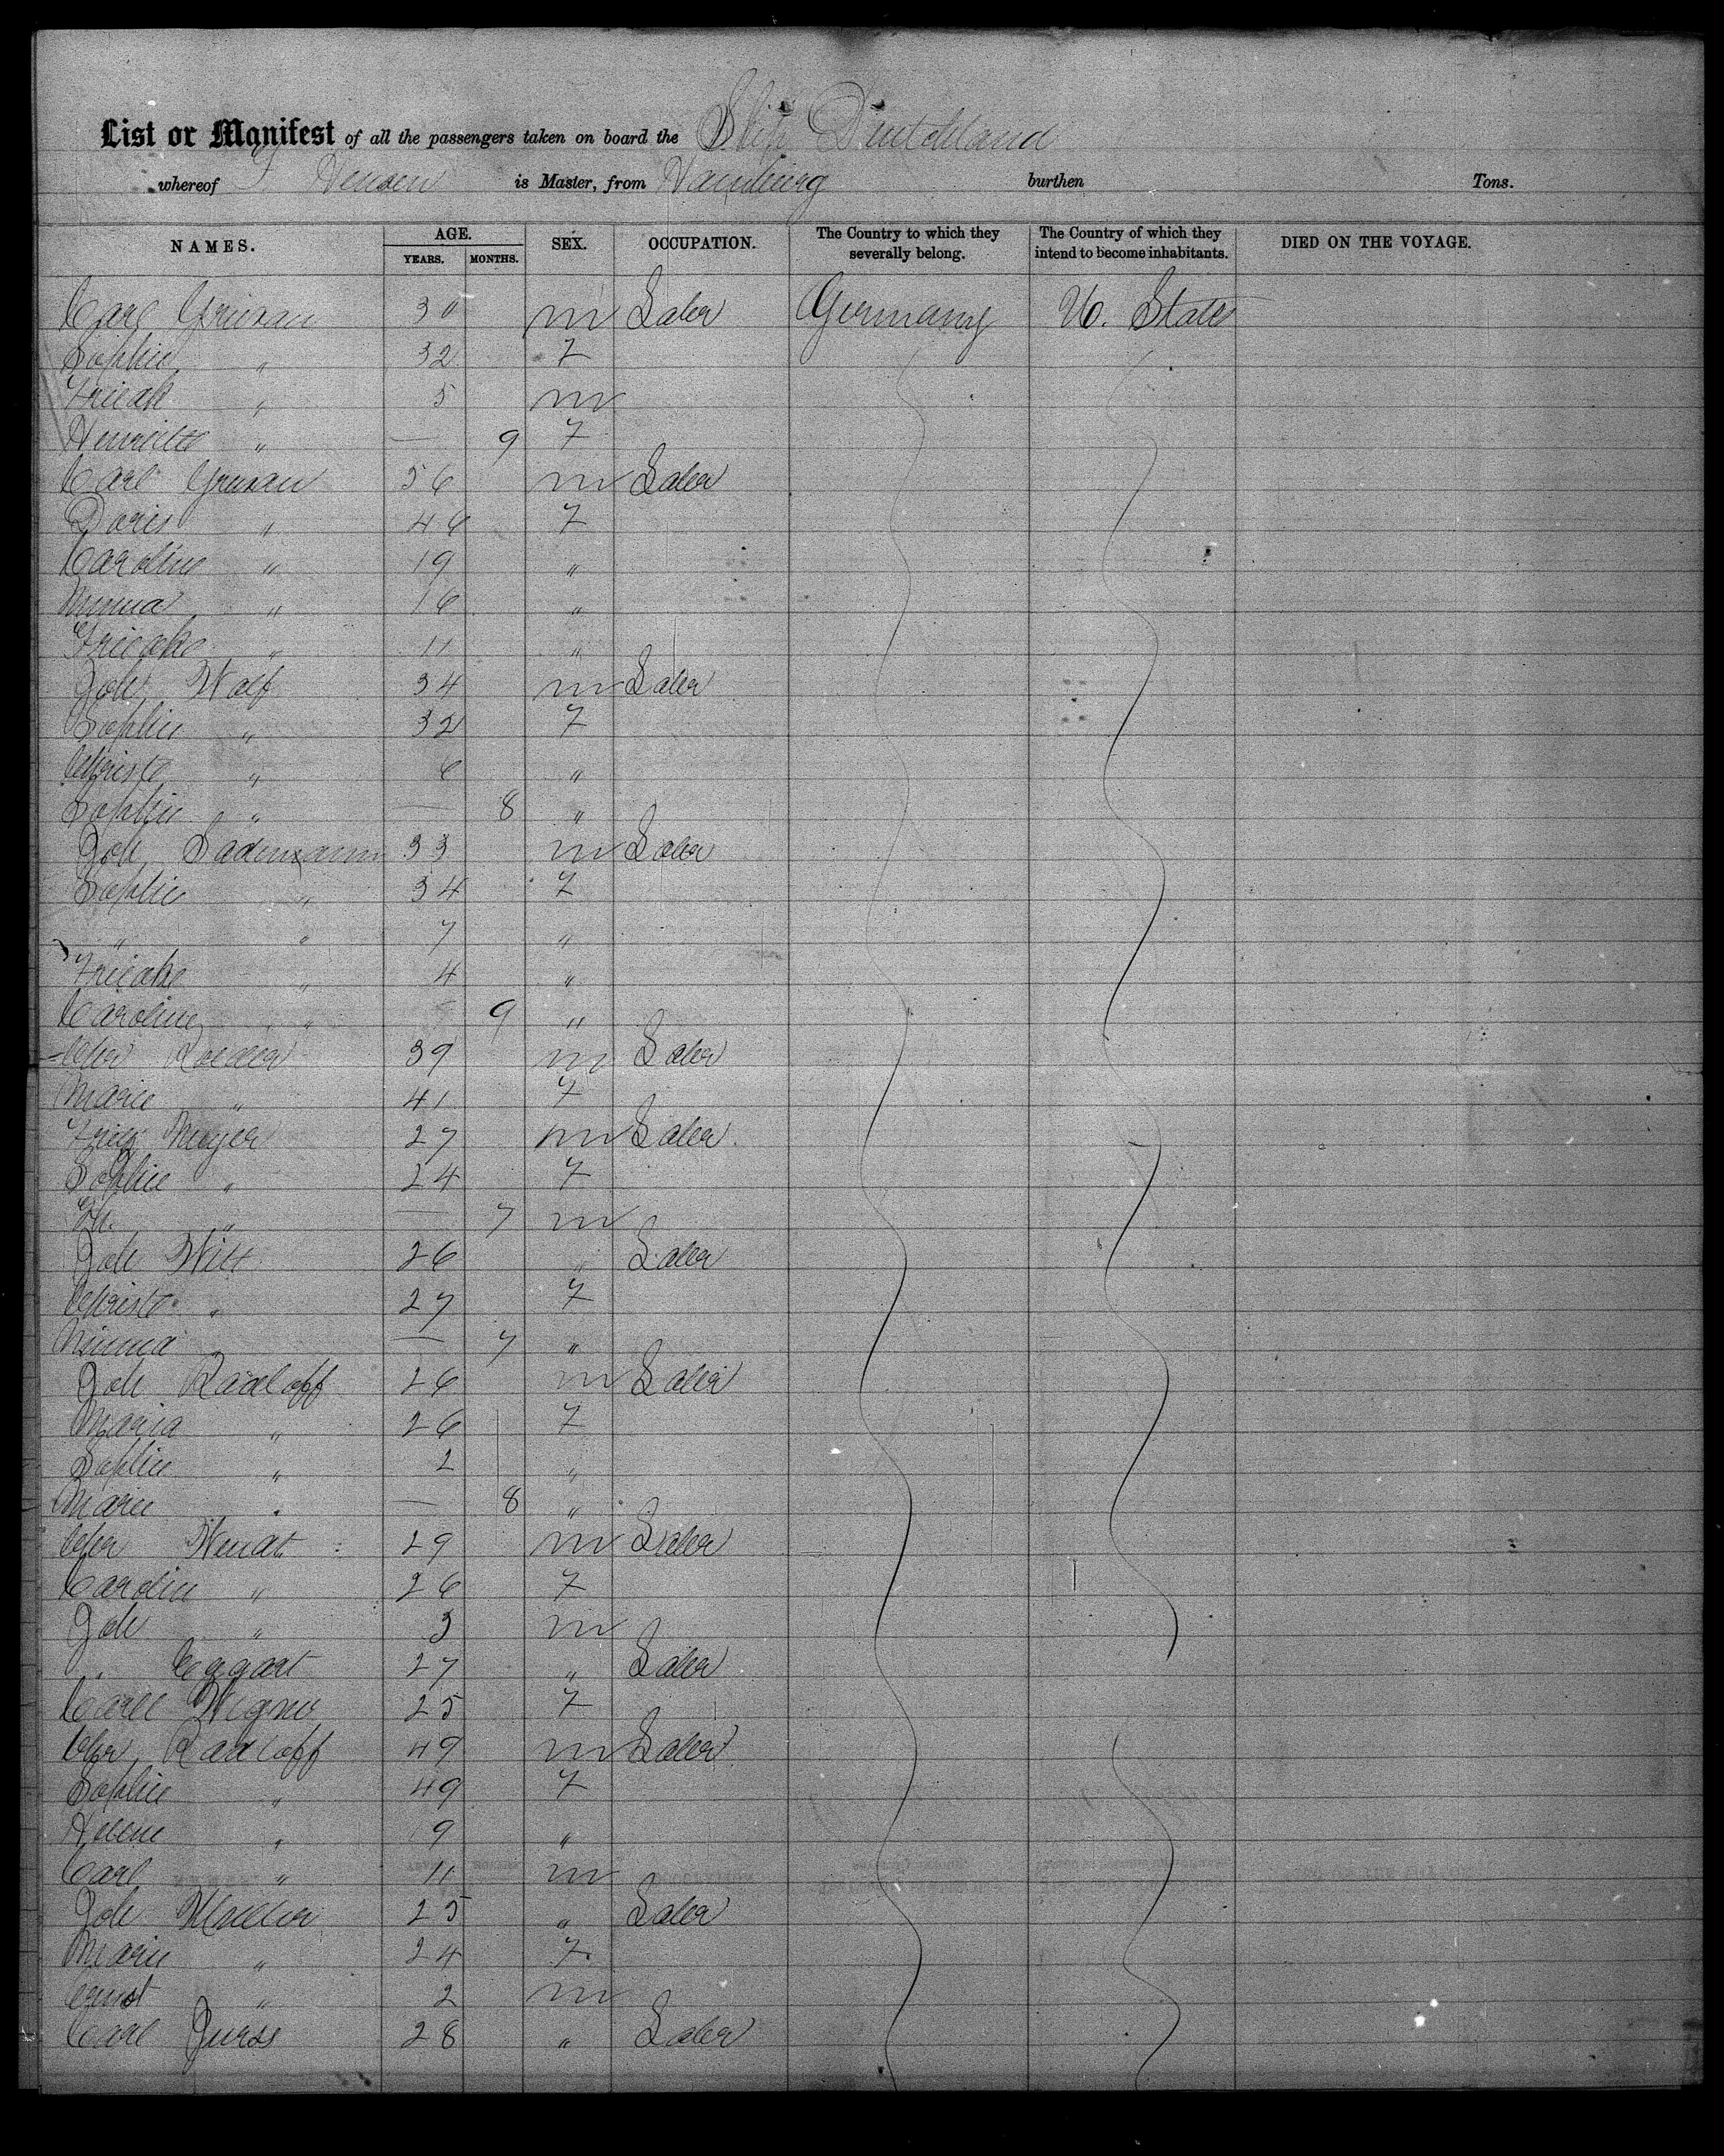 List or Manifest of all the passengers taken on board the Ship Deutchland
whereof Hensen is Master, from Hamburg burthen Tons.
NAMES. AGE. YEARS. MONTHS. SEX. OCCUPATION. The Country to which they severally belong. The Country of which they intend to become inhabitants. DIED ON THE VOYAGE.
Carl 30 m Laber Germany U. States
Sophie " 32 f
" 5 m
Henriette " — 9 f
Carl 56 m Laber
Doris " 46 f
Caroline " 19 "
Minna " 16 "
" 11 "
Joh. Wolf 34 m Laber
Sophie " 32 f
Christe " 6 "
Sophie " — 8 "
Joh. 33 m Laber
Sophie " 34 f
" " 7 "
" 4 "
Caroline " 9 "
Chr 39 m Laber
Marie " 41 f
Meyer 27 m Laber
Sophie " 24 f
" — 7 m
Joh Witt 26 " Laber
Christe " 27 f
Minna " — 7 "
Joh Radloff 26 m Laber
Maria " 26 f
Sophie " 2 "
Marie " — 8 "
Chr 29 m Laber
Caroline " 26 f
Joh " 3 m
" Eggart 27 " Laber
25 f
Chr. Radloff 49 m Laber
Sophie " 49 f
Helene " 9 "
Carl " 11 m
Joh 25 " Laber
Marie " 24 f
Ernst " 2 m
Carl Jurss 28 " Laber